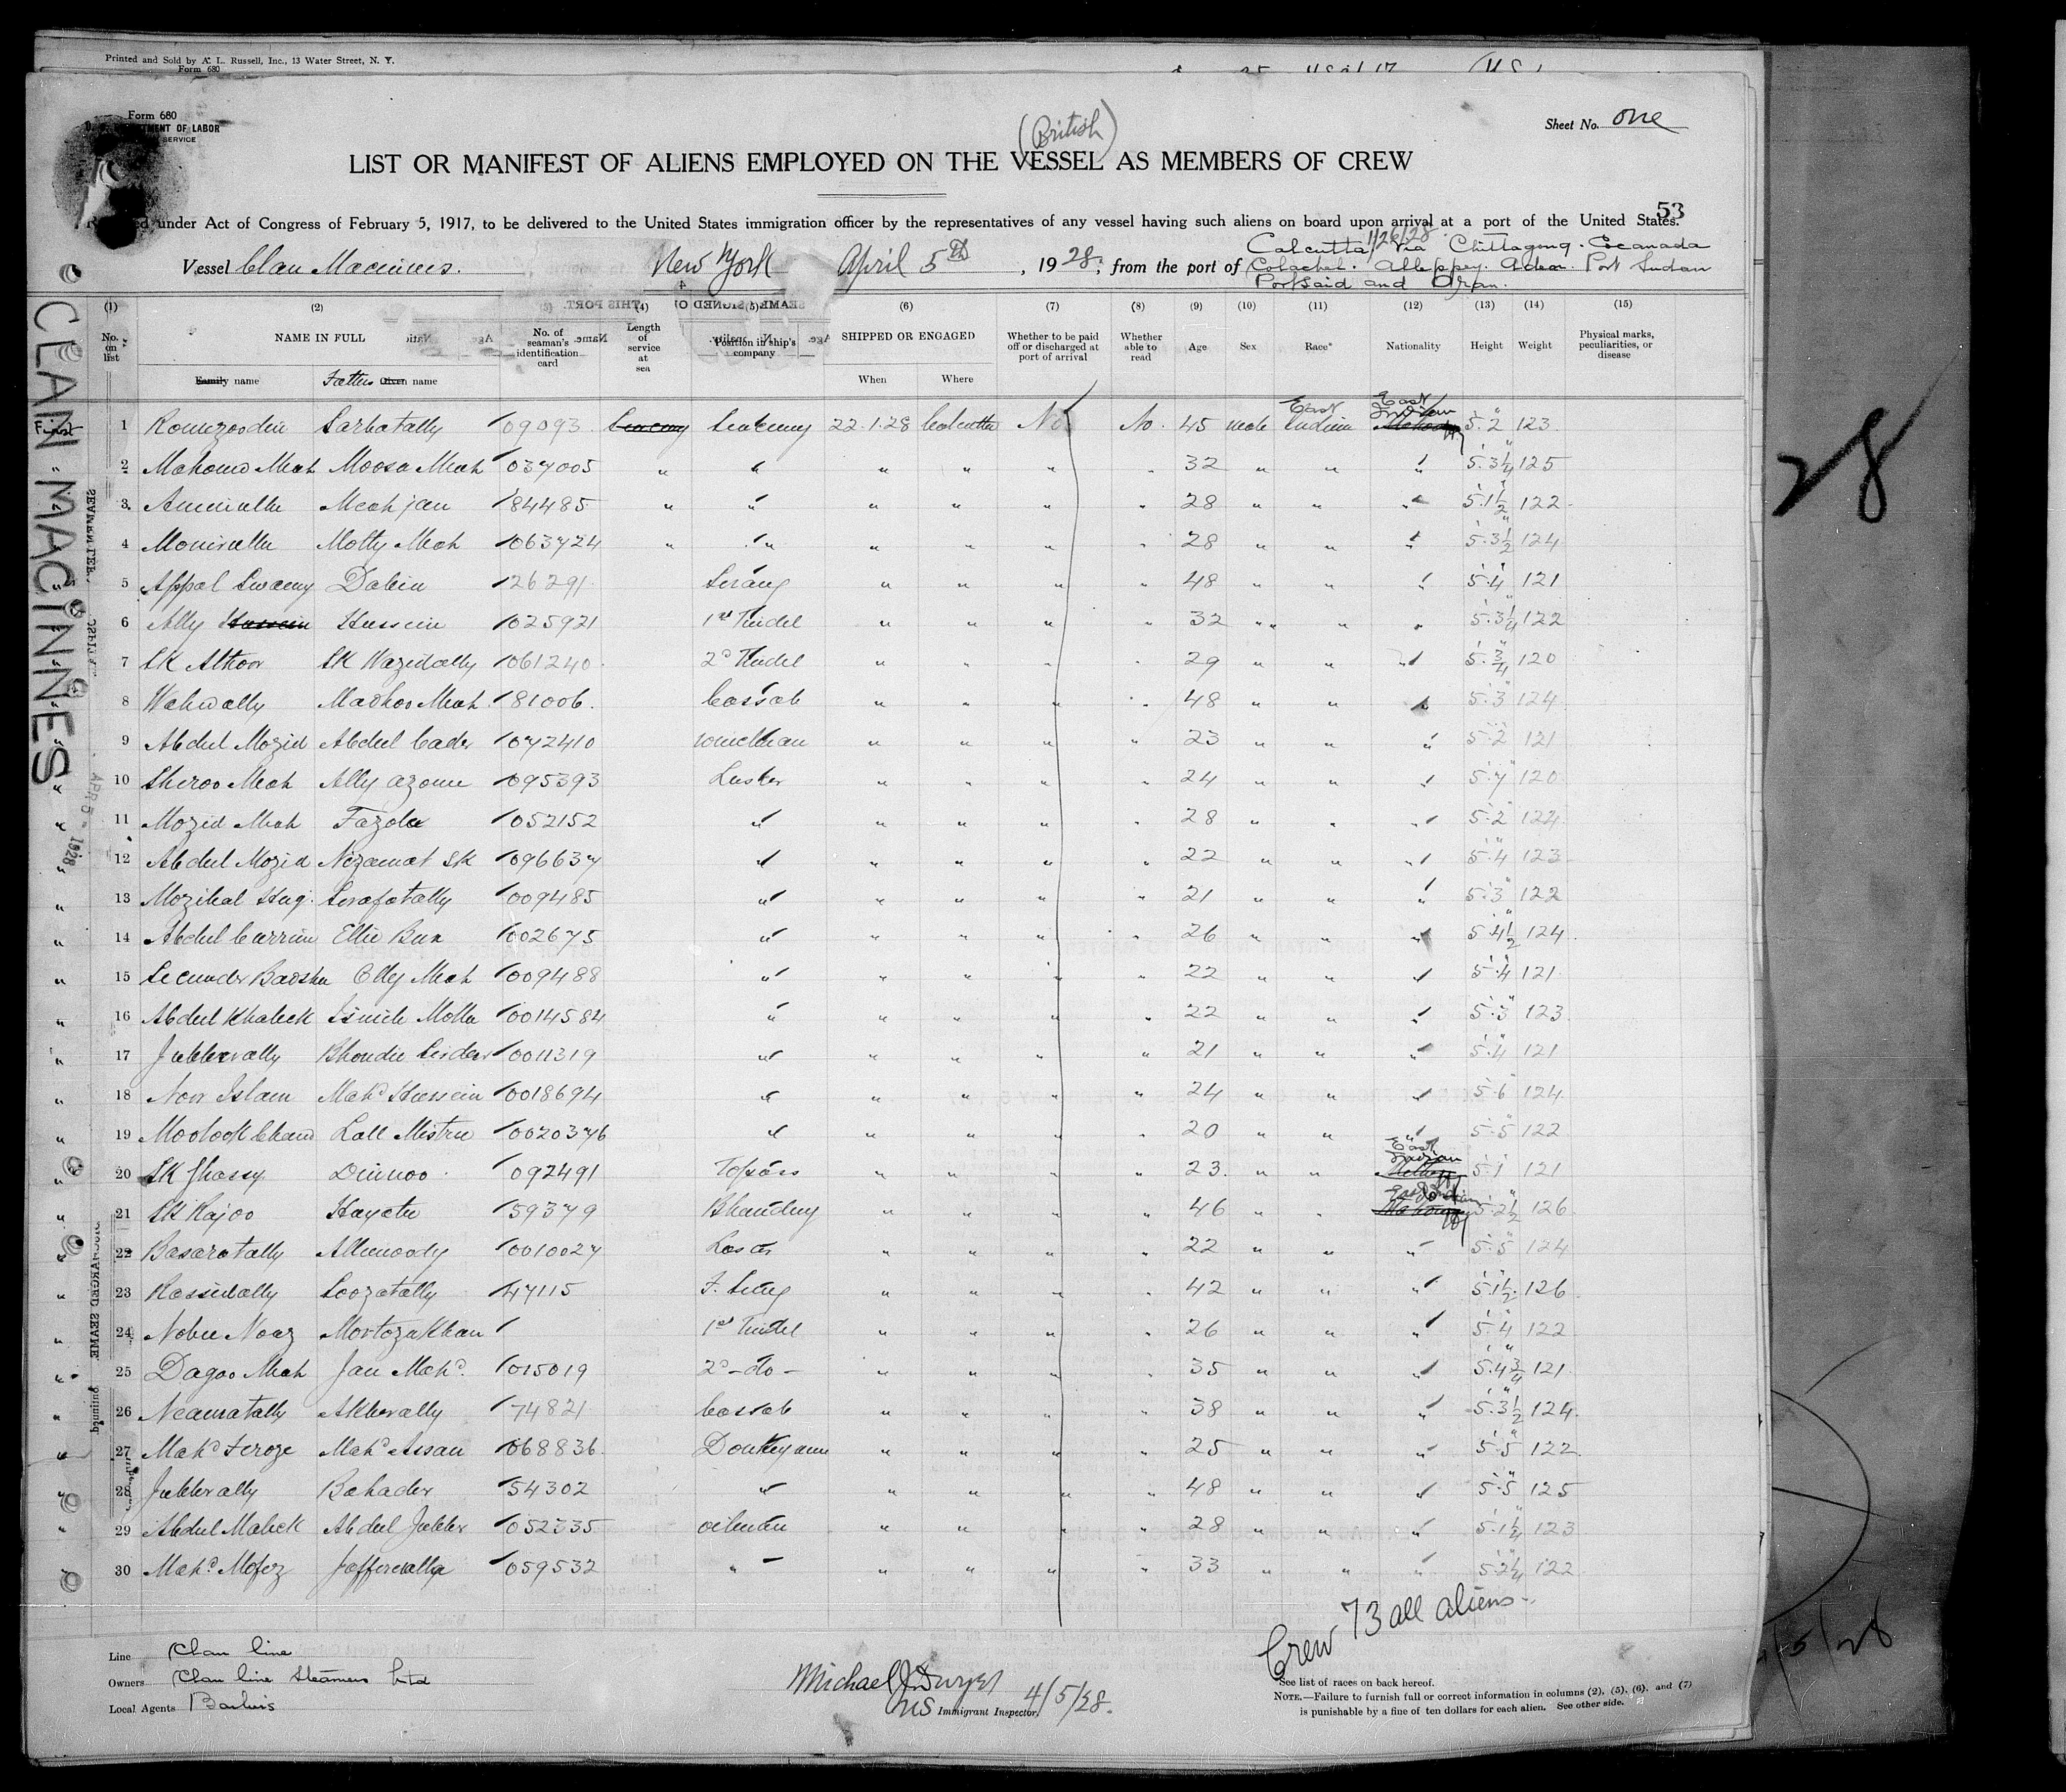 Printed and Sold by A. L. Russell, Inc., 13 Water Street, N. Y.
Form 680
Form 680
DEPARTMENT OF LABOR
SERVICE
(British)
Sheet No. One
LIST OR MANIFEST OF ALIENS EMPLOYED ON THE VESSEL AS MEMBERS OF CREW
53
under Act of Congress of February 5, 1917, to be delivered to the United States immigration officer by the representatives of any vessel having such aliens on board upon arrival at a port of the United States.
Vessel Clan Macinnes. New York April 5th, 1928, from the port of Calcutta 1/26/28 Via Chittagong. Cocanada
Colachel. Alleppey. Aden. Port Sudan
Portsaid and Oran.
(1) (2) (4) (5) (6) (7) (8) (9) (10) (11) (12) (13) (14) (15)
No. on list NAME IN FULL No. of seaman's identification card Length of service at sea Position in ship's company SHIPPED OR ENGAGED Whether to be paid off or discharged at port of arrival Whether able to read Age Sex Race* Nationality Height Weight Physical marks, peculiarities, or disease
Family name Fathers Given name When Where
First 1 Romezoodin Sarbatally 09093 Seacunny Seacunny 22.1.28 Calcutta No No. 45 male East Indian East Indian 5.2 123
2 Mahomed Meah Moosa Meah 037005 " " " " " " 32 " " " 5.3¼ 125
3 Meah jan 84485 " " " " " " 28 " " " 5.1½ 122
4 Motty Meah 063724 " " " " " " 28 " " " 5.3½ 124
5 Appal Swamy 26291 Serang " " " " 48 " " " 5.4 121
6 Ally Hussein Hussein 025921 1st Tindel " " " " 32 " " " 5.3¼ 122
7 SK Attoor SK Wazidally 061240 2d Tindel " " " " 29 " " " 5.¾ 120
8 Wahedally Madhoo Meah 81006 Cassab " " " " 48 " " " 5.3 124
9 Abdul Mozid Abdul Cader 072410 " " " " 23 " " " 5.2 121
10 Sheroo Meah Ally Azome 095393 Lasker " " " " 24 " " " 5.7 120
11 Mozid Meah Fazola 052152 " " " " " 28 " " " 5.2 122
12 Abdul Mozid Nizamat SK 096637 " " " " " 22 " " " 5.4 123
13 Mozibal Huq. Serafatally 009485 " " " " " 21 " " " 5.3 122
14 Abdul Currim Ellie Bux 002675 " " " " " 26 " " " 5.4½ 124
15 Secunder Badsha Olly Meah 009488 " " " " " 22 " " " 5.4 121
16 Abdul Khaleck Molla 0014584 " " " " " 22 " " " 5.3 123
17 Jubberally Bhondie Sirdar 0011319 " " " " " 21 " " " 5.4 121
18 Noor Islam Mahd Hussein 0018694 " " " " " 24 " " " 5.6 124
19 Moolook Chand Lall Mistrie 0020376 " " " " " 20 " " " 5.5 122
20 SK Ghassy Dinnoo 092491 Topass " " " " 23 " " East Indian 5.1 121
21 SK Rajoo 59379 Bhandary " " " " 46 " " East Indian 5.2½ 126
22 Basaratally 0010027 " " " " 22 " " " 5.5 124
23 Rassidally Soozatally 47115 F. Serng " " " " 42 " " " 5.1½ 126
24 Mortoza Khan 1st Tindel " " " " 26 " " " 5.4 122
25 Dagoo Meah Jan Mahd. 015019 2d -do- " " " " 35 " " " 5.4¾ 121
26 Neamatally Akberally 74821 Cassab " " " " 38 " " " 5.3½ 124
27 Mahd Feroze Mahd Assan 068836 Donkeyman " " " " 25 " " " 5.5 122
28 Jubberally Bahader 54302 " " " " " 48 " " " 5.5 125
29 Abdul Maleck Abdul Jubber 052335 oilman " " " " 28 " " " 5.1¼ 123
30 Mahd. Mofez 059532 " " " " " 33 " " " 5.2¼ 122
Crew 73 all aliens
CLAN MACINNES
APR 5 - 1928
28
Line Clan line
Owners Clan line Steamers Ltd
Local Agents Barbers
Michael J. Dwyer
US Immigrant Inspector 4/5/28.
See list of races on back hereof.
NOTE.—Failure to furnish full or correct information in columns (2), (5), (6), and (7)
is punishable by a fine of ten dollars for each alien. See other side.